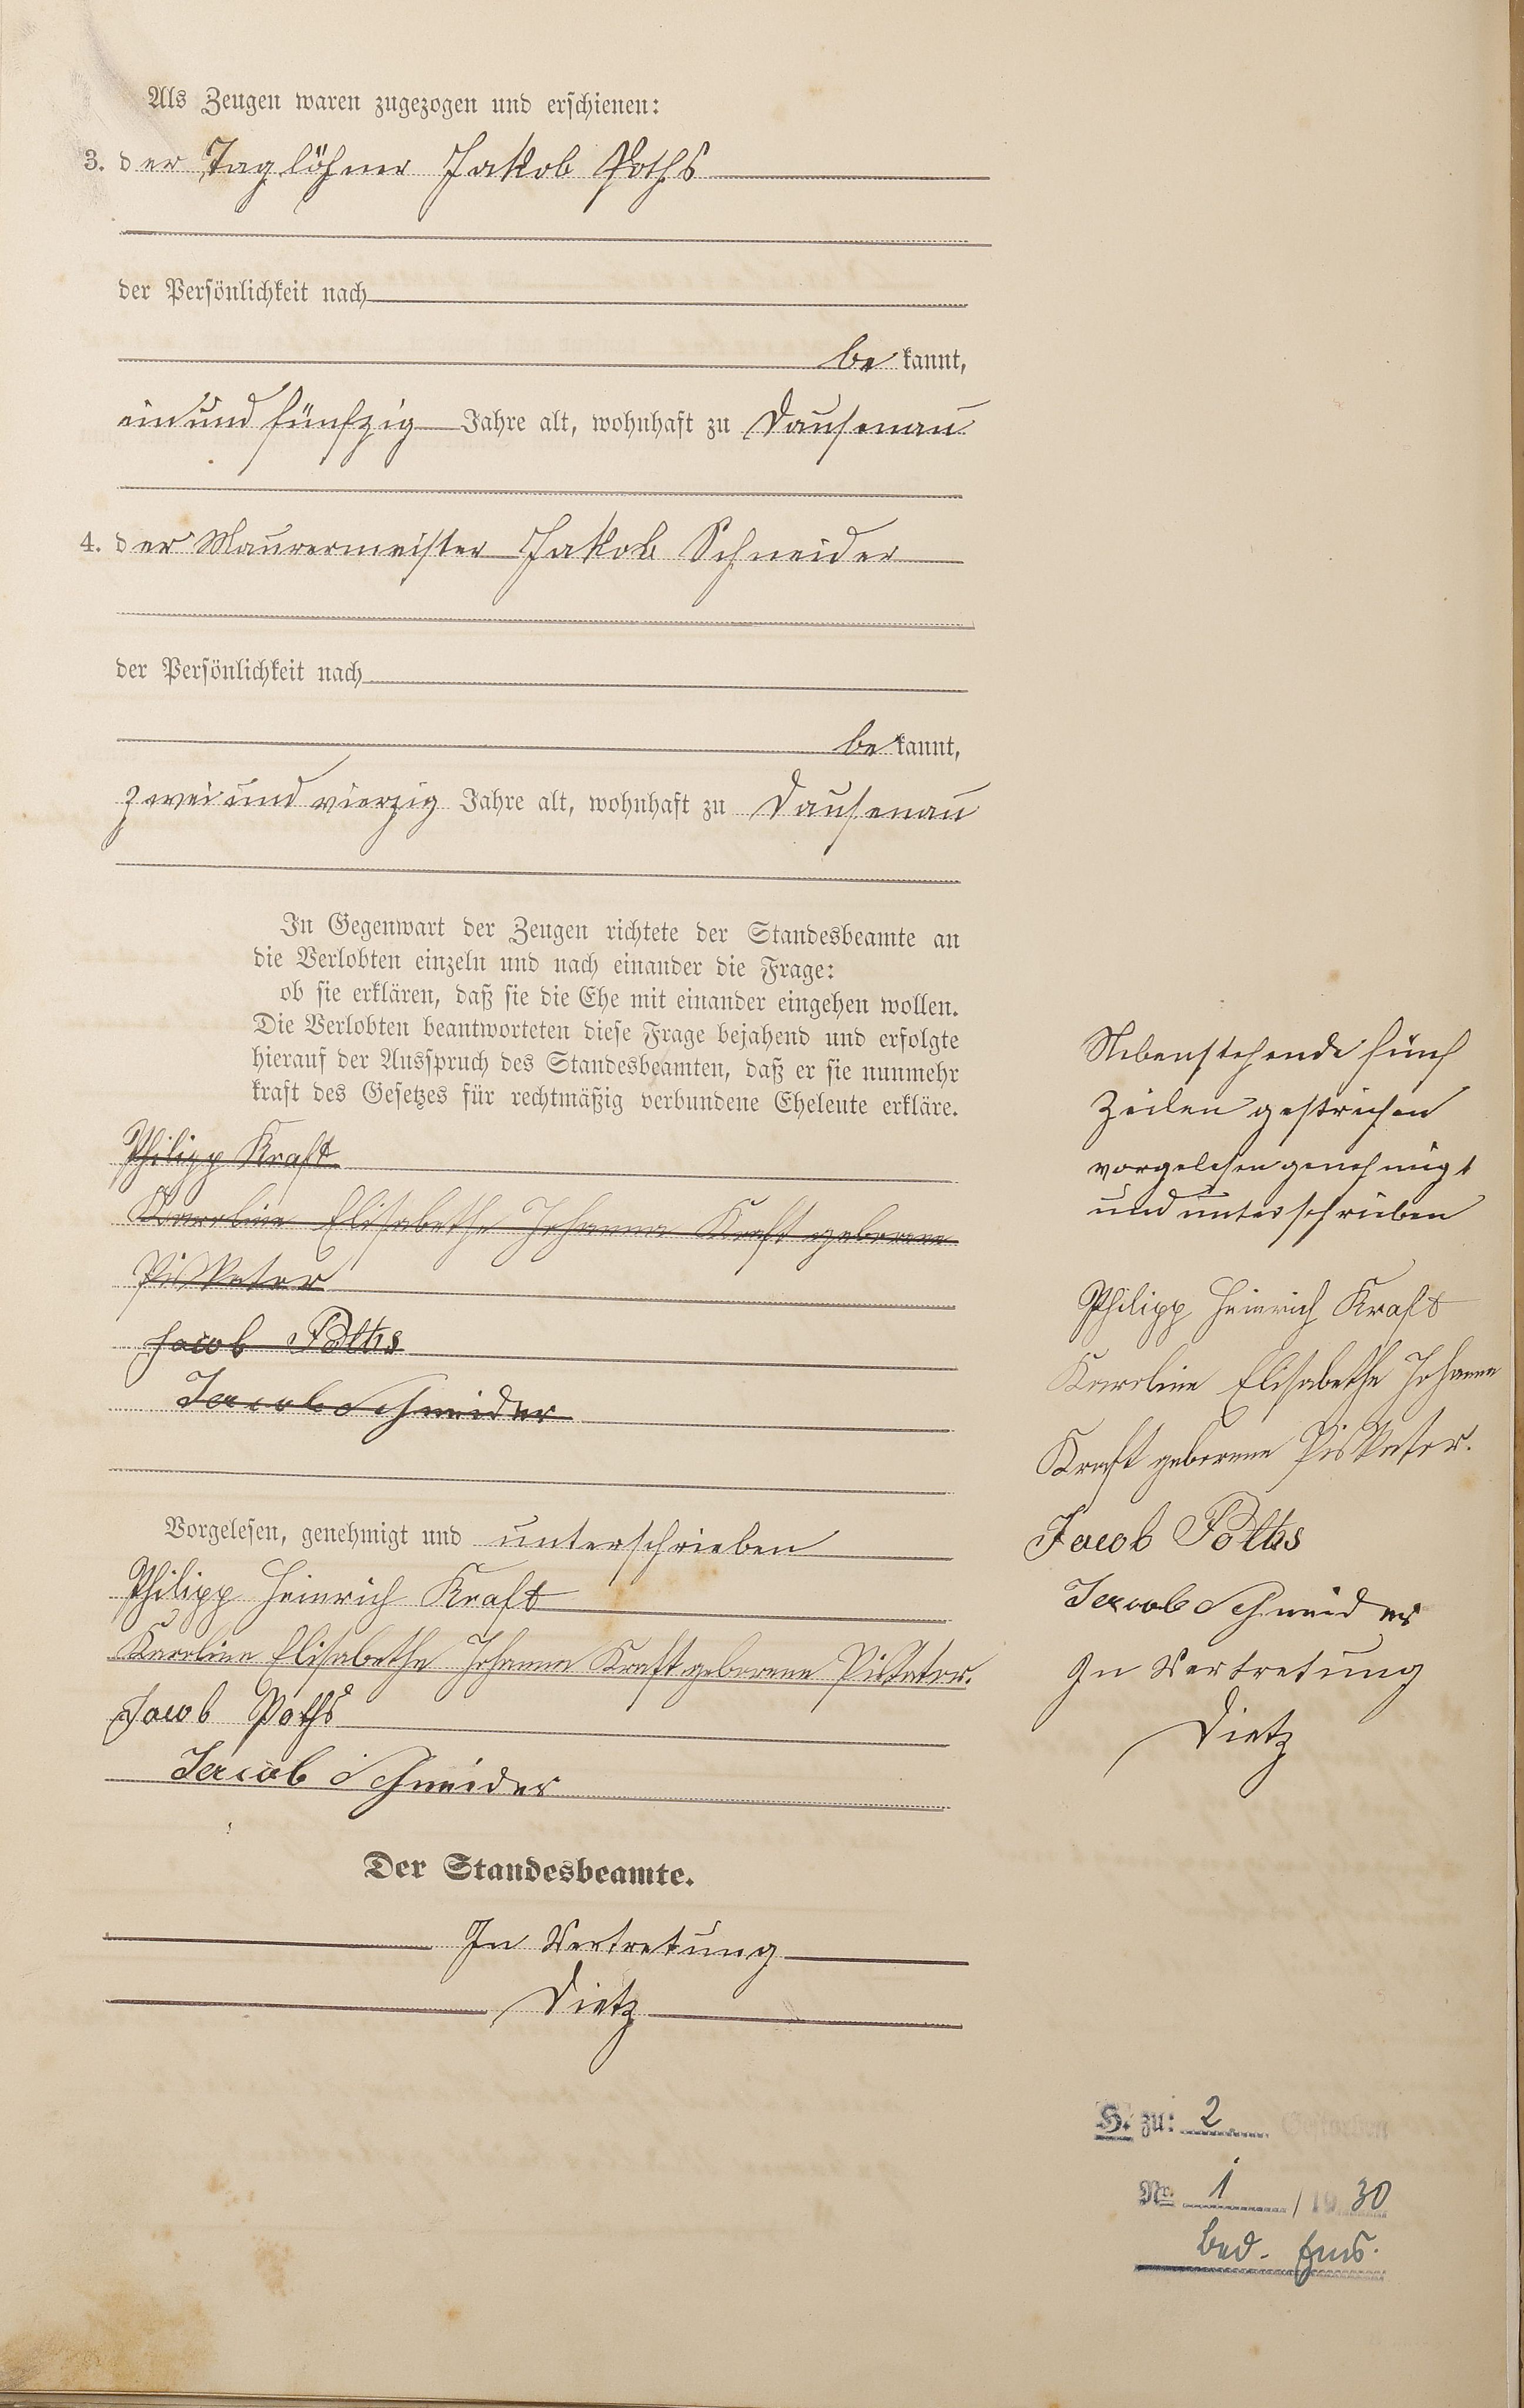 Als Zeugen waren zugezogen und erschienen:
3. der Taglöhner Jakob Poths
der Persönlichkeit nach
bekannt,
einundfünfzig Jahre alt, wohnhaft zu Dausenau
4. der Maurermeister Jakob Schneider
der Persönlichkeit nach
bekannt,
zweiundvierzig Jahre alt, wohnhaft zu Dausenau
In Gegenwart der Zeugen richtete der Standesbeamte an
die Verlobten einzeln und nach einander die Frage:
ob sie erklären, daß sie die Ehe mit einander eingehen wollen.
Die Verlobten beantworteten diese Frage bejahend und erfolgte
hierauf der Ausspruch des Standesbeamten, daß er sie nunmehr
kraft des Gesetzes für rechtmäßig verbundene Eheleute erkläre.
Philipp Kraft
Karoline Elisabethe Johanna Kraft geborene
Piskator
Jacob Poths
Jacob Schneider
Vorgelesen, genehmigt und unterschrieben
Philipp Heinrich Kraft
Karoline Elisabethe Johanna Kraft geborene Piskator.
Jacob Poths
Jacob Schneider
Der Standesbeamte.
In Vertretung
Dietz
Nebenstehende fünf
Zeilen gestrichen
vorgelesen genehmigt
und unterschrieben
Philipp Heinrich Kraft
Karoline Elisabethe Johanna
Kraft geborene Piskator.
Jacob Poths
Jacob Schneider
In Vertretung
Dietz
H. zu: 2 Gestorben
Nr. 1 / 1930
Bad-Ems.